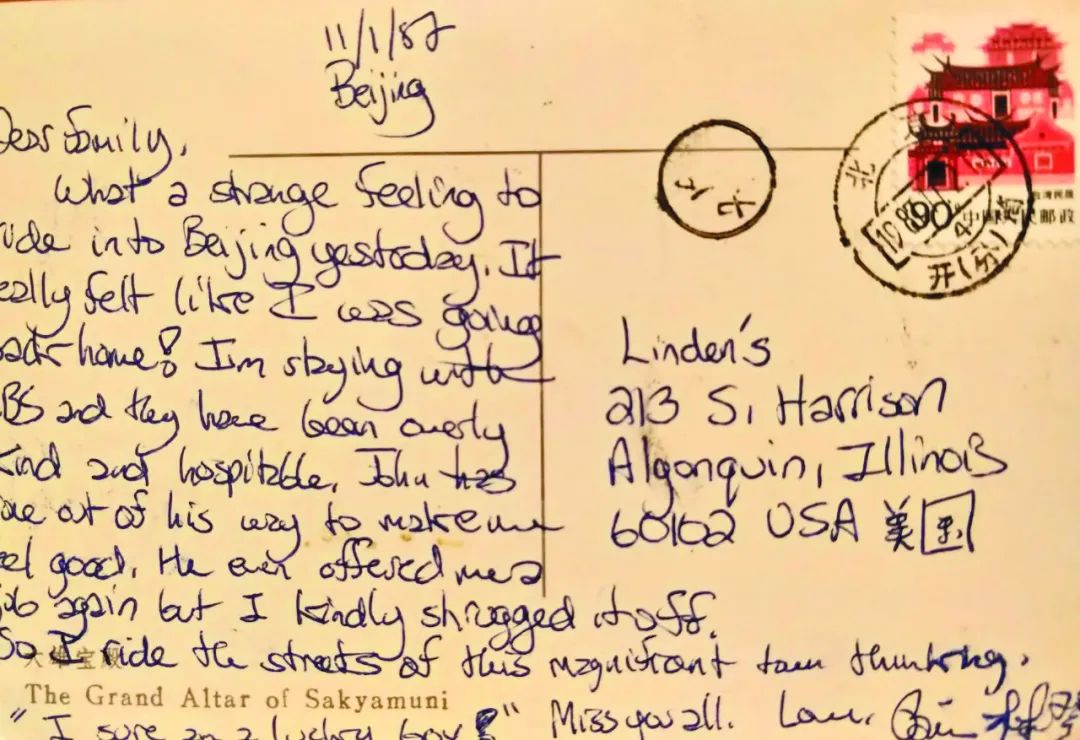 11/1/87
Beijing
Dear Family,
What a strange feeling to
ride into Beijing yestoday. It
eally felt like I was going
ack home! I'm staying with
BS and they have been overly
kind and hospitable. John has
one out of his way to make me
eel good. He even offered me a
job again but I kindly shrugged it off.
So I ride the streets of this magnificant town thinking.
大雄宝殿
The Grand Altar of Sakyamuni
"I sure am a lucky boy!" Miss you all. Love,
Linden's
213 S. Harrison
Algonquin, Illinois
60102 USA 美国
台湾民居
90 中国人民邮政
北
开(分)